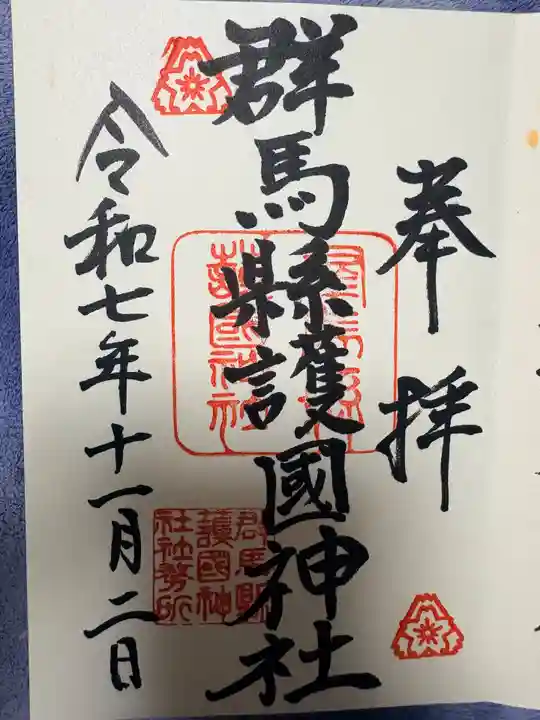 奉拝
群馬縣護國神社
群馬縣
護國神社
群馬縣
護國神
社社務所
令和七年十一月二日